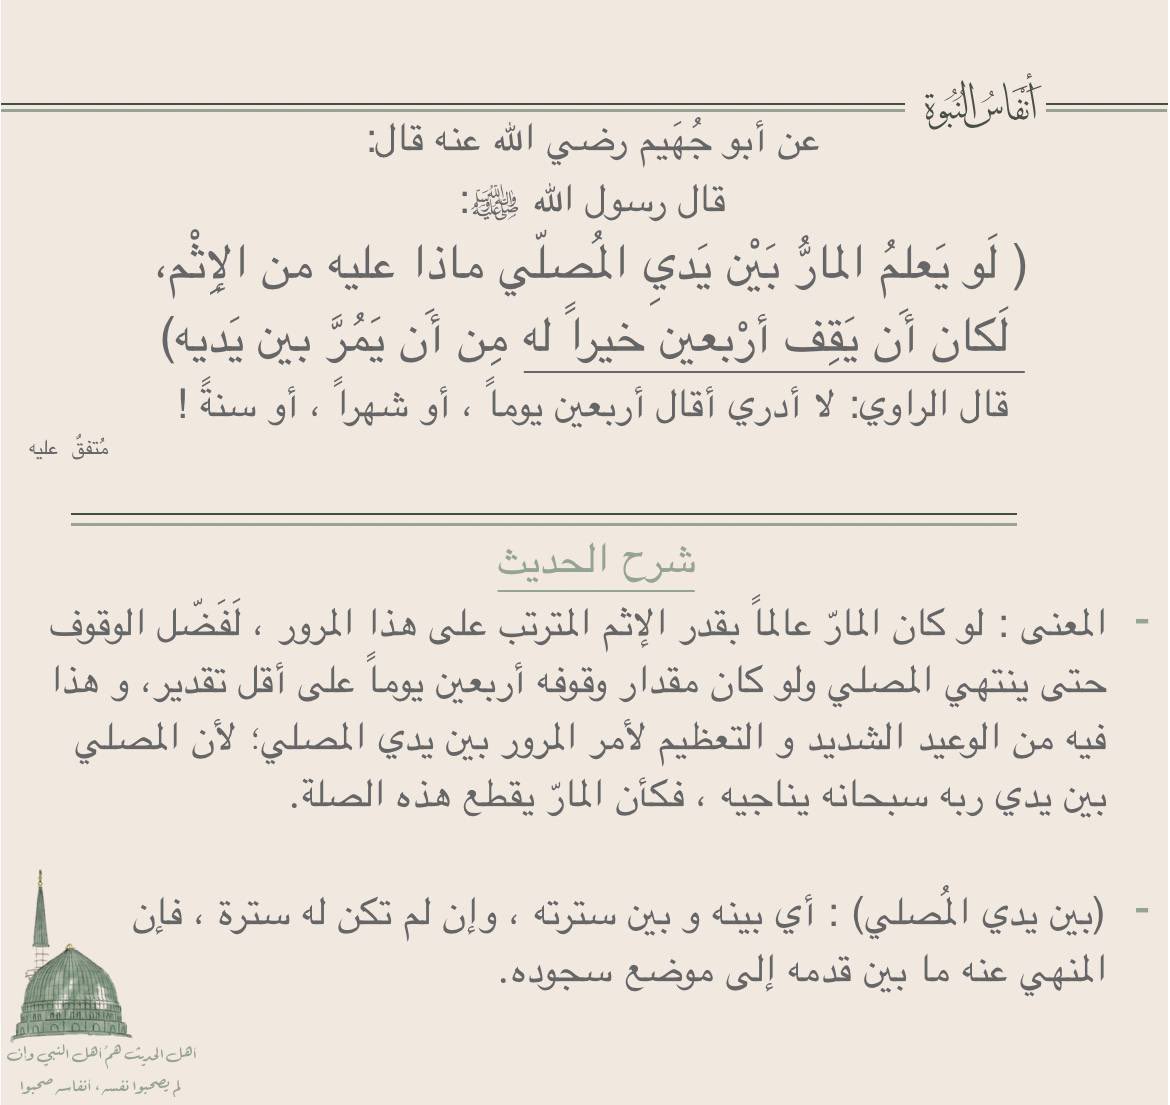 أَنْفَاسُ النُّبُوة
عن أبو جُهَيم رضي الله عنه قال:
قال رسول الله ﷺ:
( لَو يَعلمُ المارُّ بَيْن يَدىِ المُصلّي ماذا عليه من الإِثْم،
لَكان أَن يَقِف أرْبعين خيراً له مِن أَن يَمُرَّ بين يَديه)
قال الراوي: لا أدري أقال أربعين يوماً ، أو شهراً ، أو سنةً !
مُتفقٌ عليه
شرح الحديث
- المعنى : لو كان المارّ عالماً بقدر الإثم المترتب على هذا المرور ، لَفَضّل الوقوف
حتى ينتهي المصلي ولو كان مقدار وقوفه أربعين يوماً على أقل تقدير، و هذا
فيه من الوعيد الشديد و التعظيم لأمر المرور بين يدي المصلي؛ لأن المصلي
بين يدي ربه سبحانه يناجيه ، فكأن المارّ يقطع هذه الصلة.
- (بين يدي المُصلي) : أي بينه و بين سترته ، وإن لم تكن له سترة ، فإن
المنهي عنه ما بين قدمه إلى موضع سجوده.
أهل الحديث همُ أهل النبي وان
لم يصحبوا نفسه ، أنفاسه صحبوا